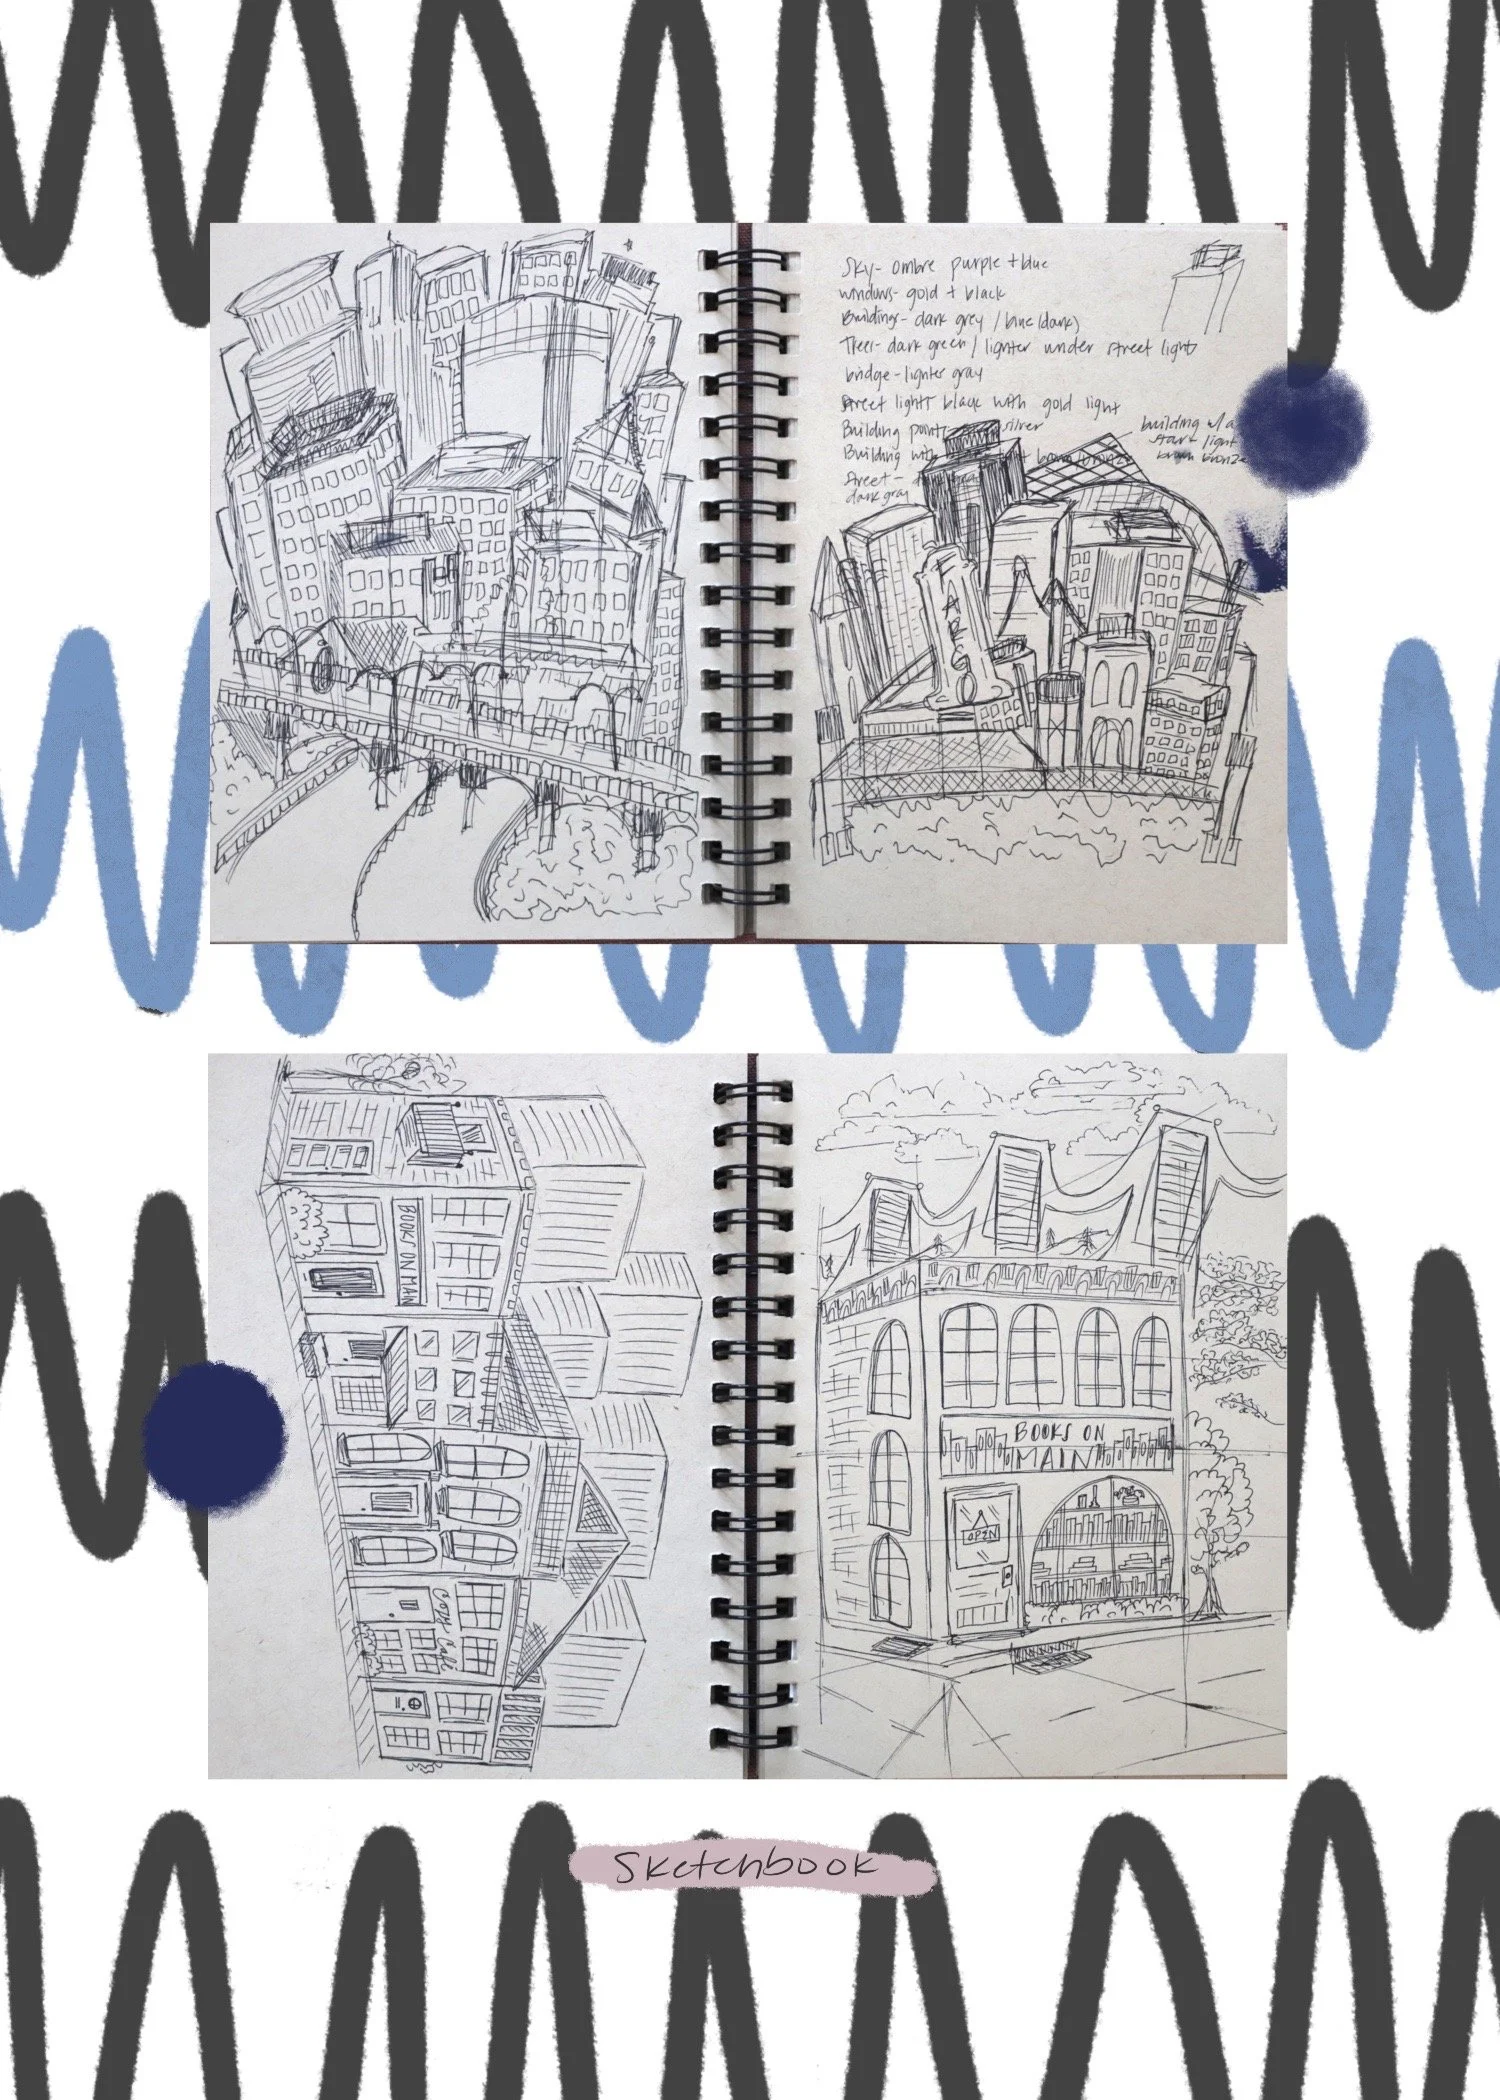 Sky- ombre purple + blue
windows- gold + black
Buildings- dark grey / blue (dark)
Trees- dark green / lighter under street light
bridge- lighter gray
Street lights black with gold light
Building point silver
building w/ a
stark light
brown bronze
Building with light brown/bronze
Street -
dark gray
FARGO
BOOKS ON MAIN
BOOKS ON
MAIN
OPEN
Sketchbook